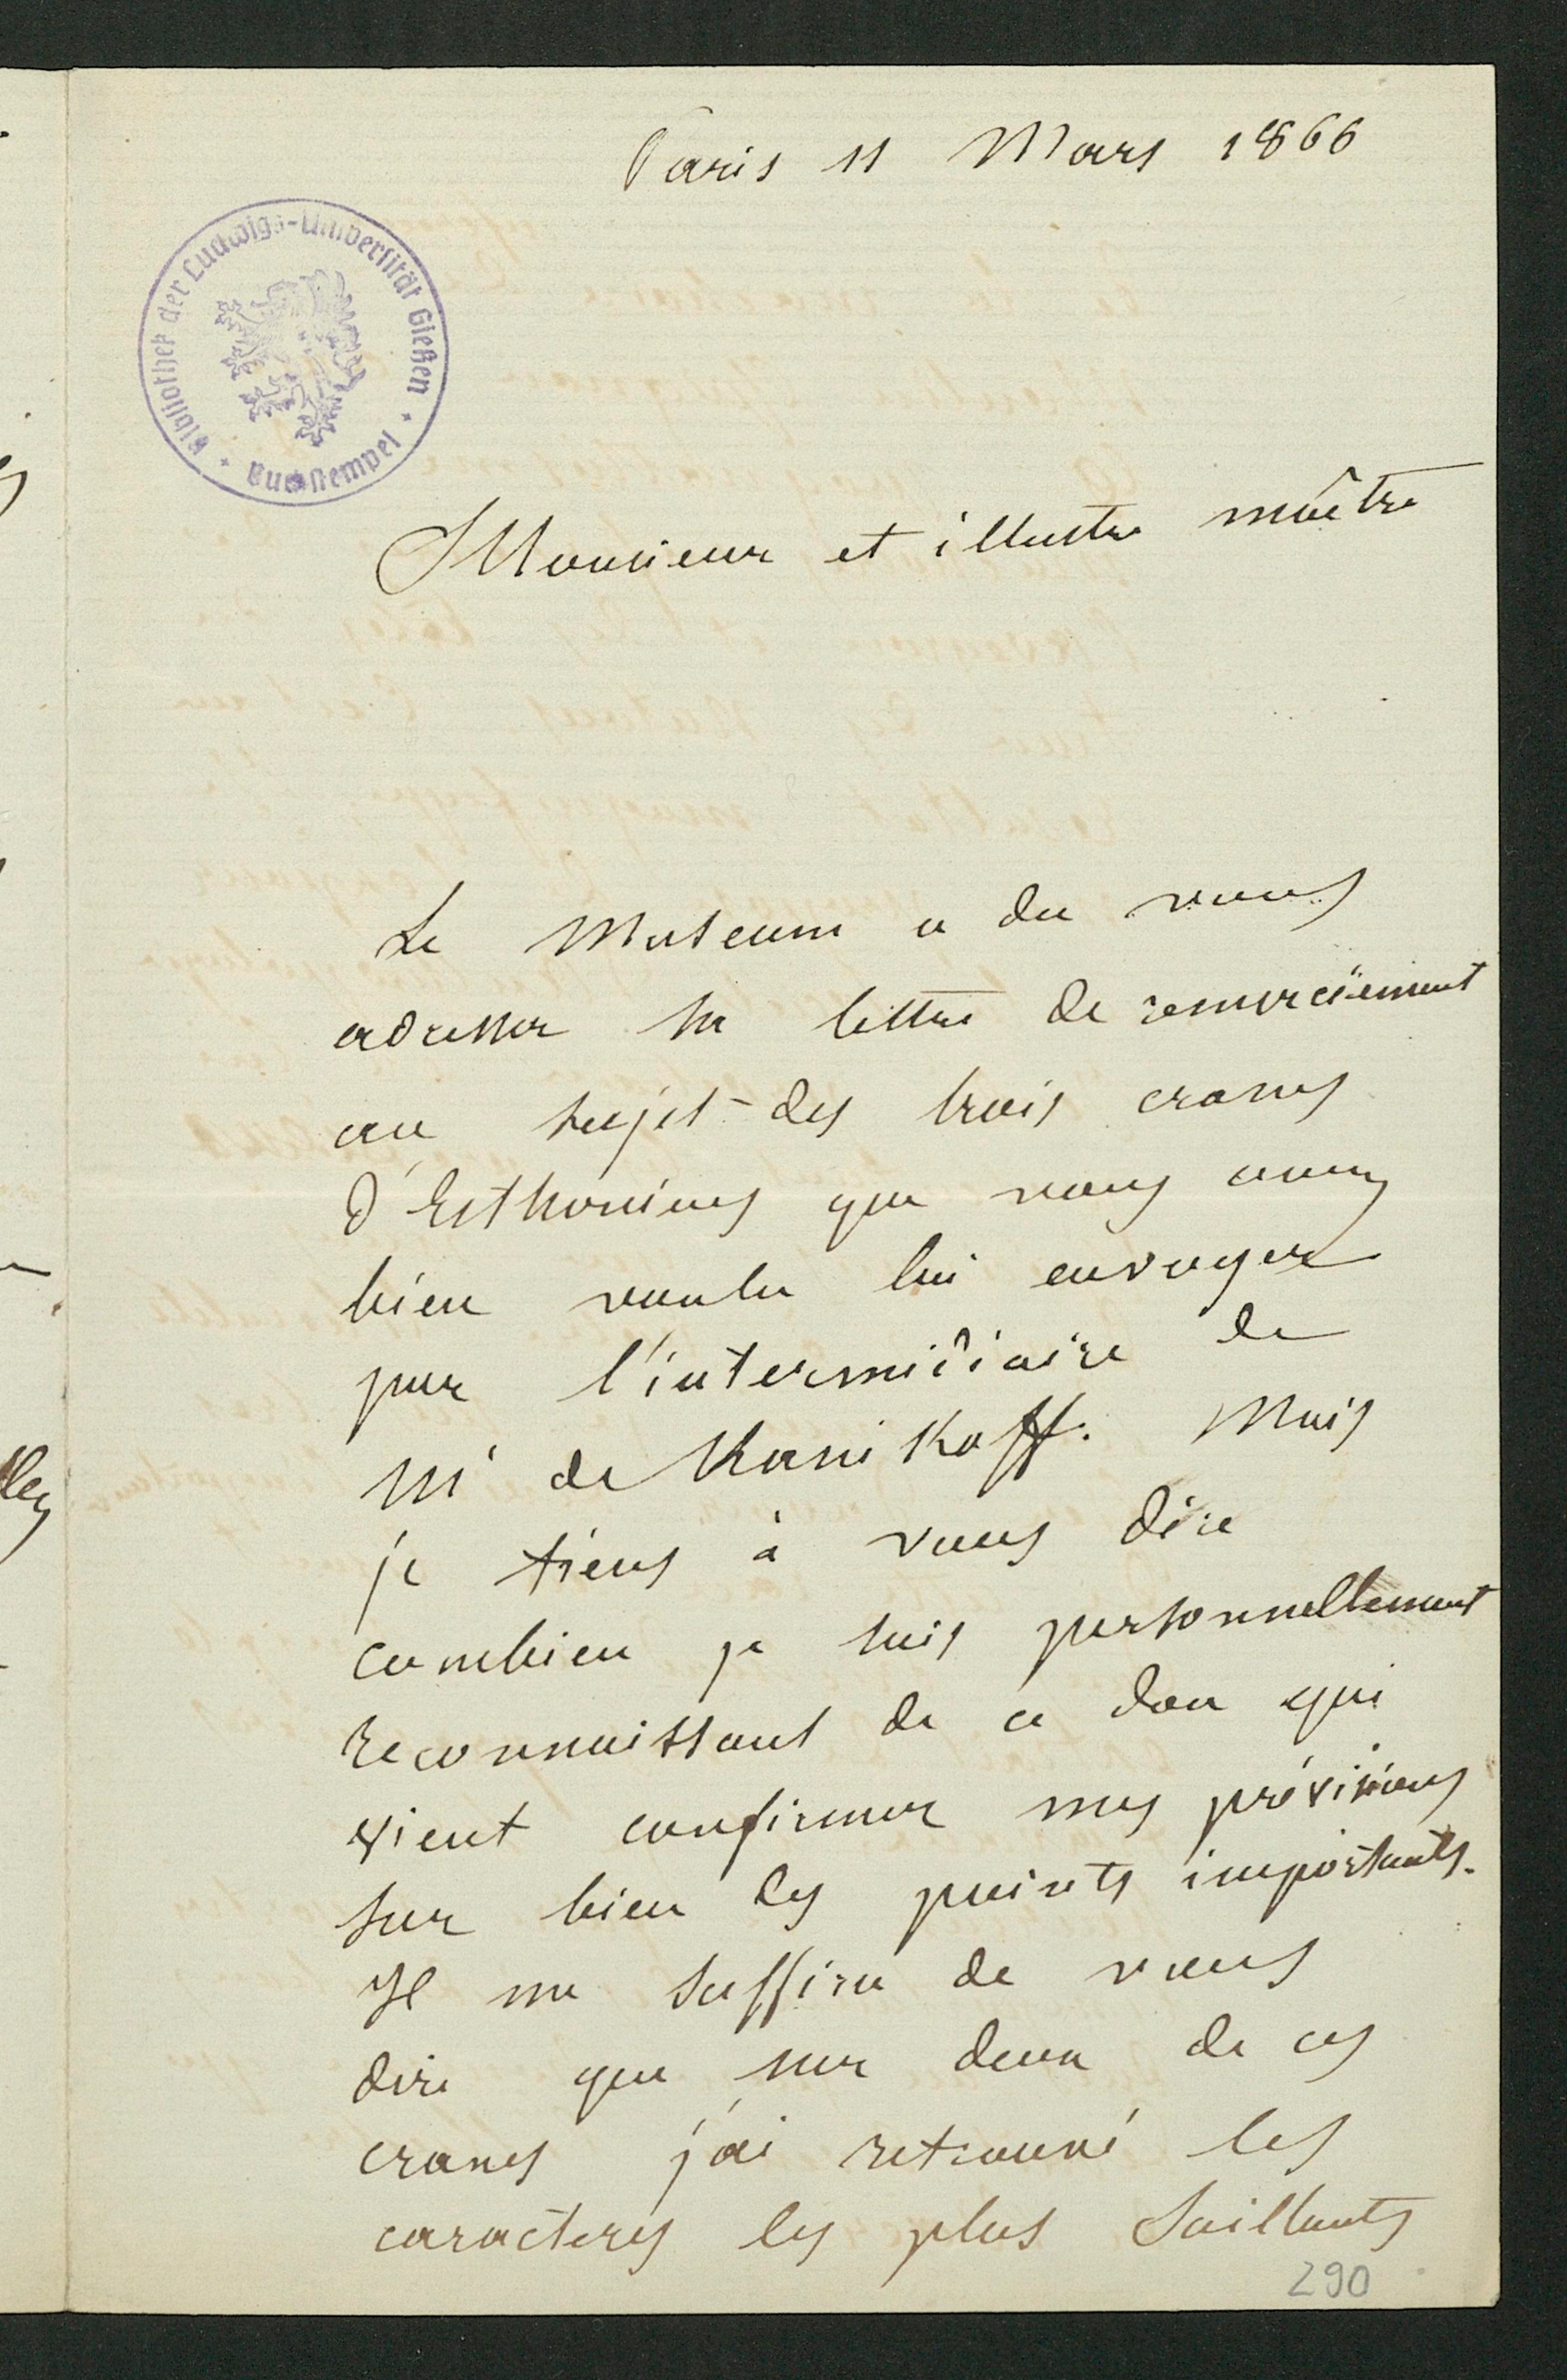 Paris 11 Mars 1866
Bibliothek der Ludwigs-Universität Gießen
Buchstempel
Monsieur et illustre maître
Le Museum a du vous
adresser sa lettre de remerciement
au sujet des trois cranes
d'Esthoniens que vous avez
bien voulu lui envoyer
par l'intermédiaire de
Mr de Kanikoff. Mais
je tiens à vous dire
combien je suis personnellement
reconnaissant de ce don qui
vient confirmer mes prévisions
sur bien des points importants.
Il me suffira de vous
dire que sur deux de ces
cranes j'ai retrouvé les
caracteres les plus saillants
290